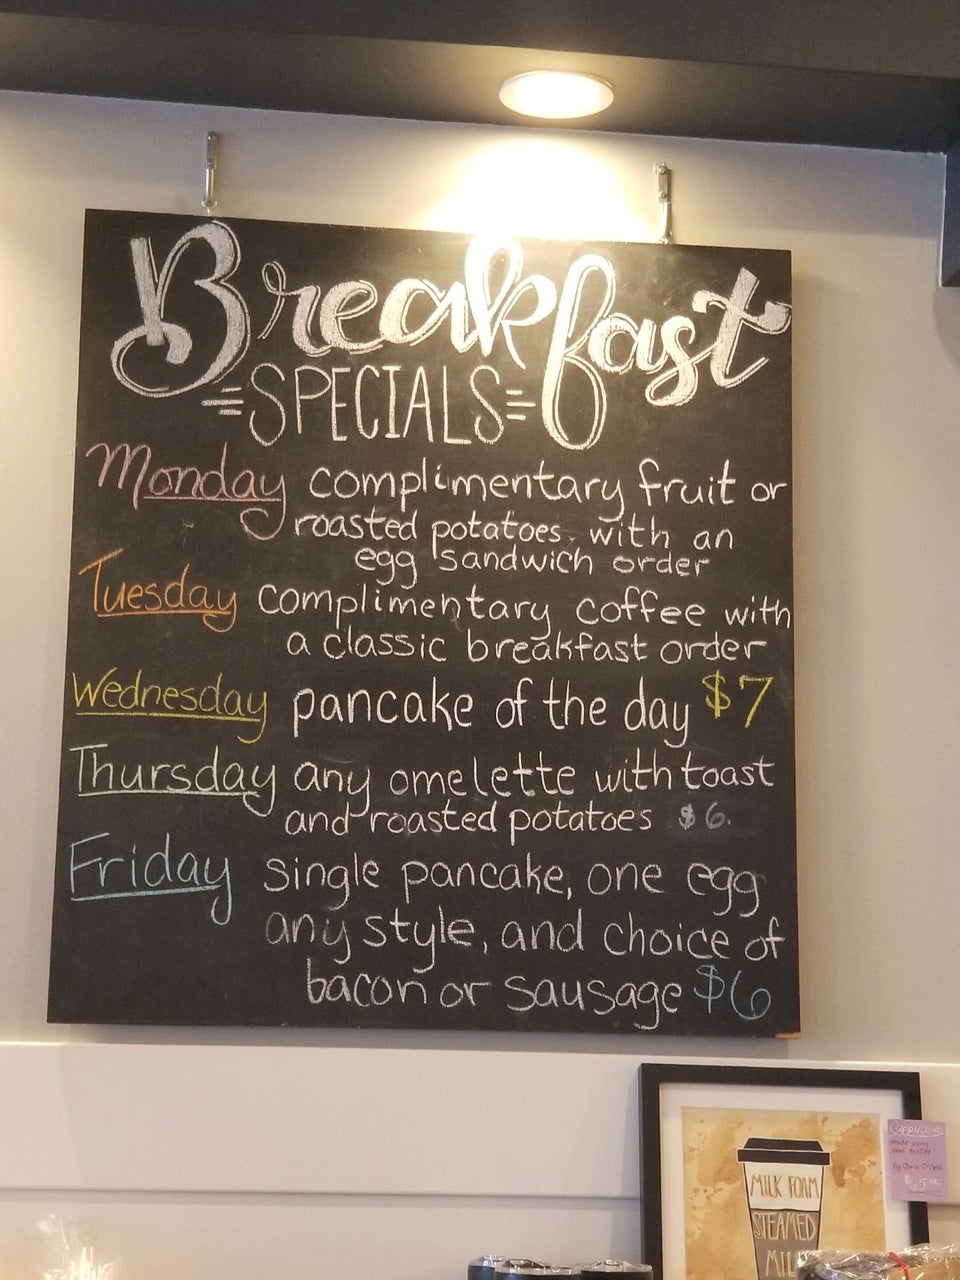 Breakfast
=SPECIALS=
Monday complimentary fruit or
roasted potatoes with an
egg sandwich order
Tuesday complimentary coffee with
a classic breakfast order
Wednesday pancake of the day $7
Thursday any omelette with toast
and roasted potatoes $6.
Friday single pancake, one egg
any style, and choice of
bacon or sausage $6
Cappuccino
made using
real coffee!
$65
MILK FOAM
STEAMED
MIL